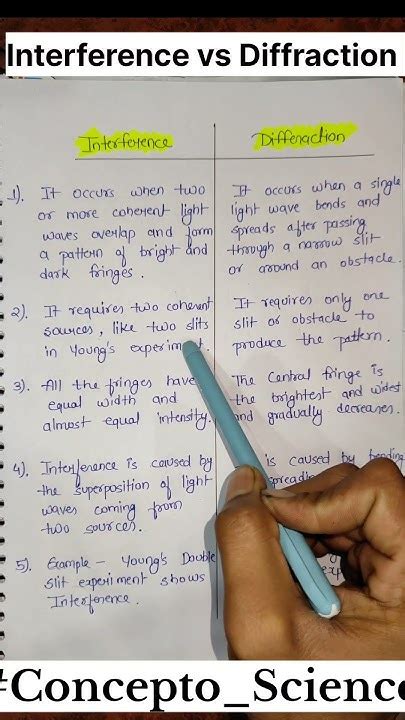 Interference vs Diffraction
Interference
Differaction
1). It occurs when two
or more coherent light
waves overlap and form
a pattern of bright and
dark fringes.
It occurs when a single
light wave bends and
spreads after passing
through a narrow slit
or around an obstacle.
2). It requires two coherent
sources, like two slits
in Young's experiment.
It requires only one
slit or obstacle to
produce the pattern.
3). All the fringes have
equal width and
almost equal intensity.
The Central fringe is
the brightest and widest
and gradually decreases.
4). Interference is caused by
the superposition of light
waves coming from
two sources.
is caused by bending
5). Example - Young's Double
slit experiment shows
Interference.
#Concepto_Science